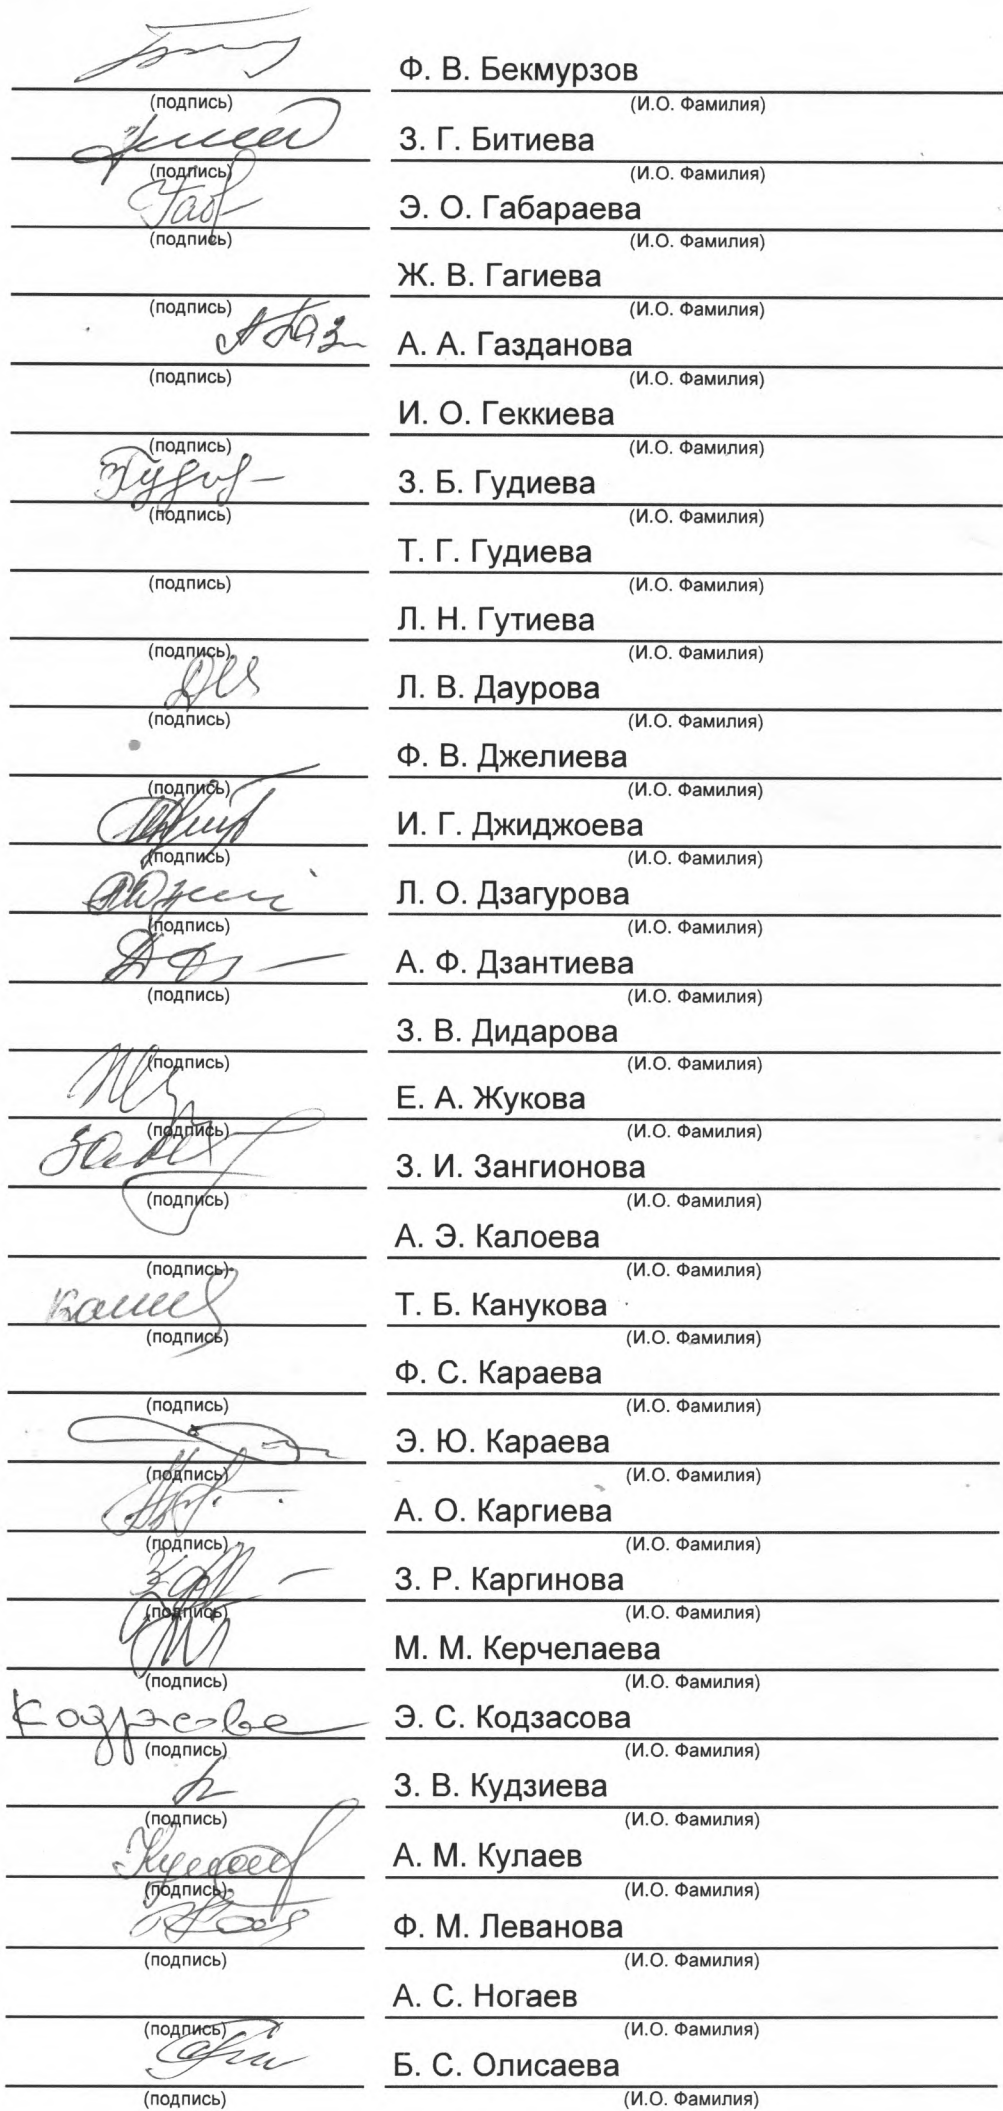 Ф. В. Бекмурзов
(подпись) (И.О. Фамилия)
З. Г. Битиева
(подпись) (И.О. Фамилия)
Габ
Э. О. Габараева
(подпись) (И.О. Фамилия)
Ж. В. Гагиева
(подпись) (И.О. Фамилия)
А. А. Газданова
(подпись) (И.О. Фамилия)
И. О. Геккиева
(подпись) (И.О. Фамилия)
З. Б. Гудиева
(подпись) (И.О. Фамилия)
Т. Г. Гудиева
(подпись) (И.О. Фамилия)
Л. Н. Гутиева
(подпись) (И.О. Фамилия)
Л. В. Даурова
(подпись) (И.О. Фамилия)
Ф. В. Джелиева
(подпись) (И.О. Фамилия)
И. Г. Джиджоева
(подпись) (И.О. Фамилия)
Л. О. Дзагурова
(подпись) (И.О. Фамилия)
А. Ф. Дзантиева
(подпись) (И.О. Фамилия)
З. В. Дидарова
(подпись) (И.О. Фамилия)
Е. А. Жукова
(подпись) (И.О. Фамилия)
З. И. Зангионова
(подпись) (И.О. Фамилия)
А. Э. Калоева
(подпись) (И.О. Фамилия)
Т. Б. Канукова
(подпись) (И.О. Фамилия)
Ф. С. Караева
(подпись) (И.О. Фамилия)
Э. Ю. Караева
(подпись) (И.О. Фамилия)
А. О. Каргиева
(подпись) (И.О. Фамилия)
З. Р. Каргинова
(подпись) (И.О. Фамилия)
М. М. Керчелаева
(подпись) (И.О. Фамилия)
Кодзасова Э. С. Кодзасова
(подпись) (И.О. Фамилия)
З. В. Кудзиева
(подпись) (И.О. Фамилия)
А. М. Кулаев
(подпись) (И.О. Фамилия)
Ф. М. Леванова
(подпись) (И.О. Фамилия)
А. С. Ногаев
(подпись) (И.О. Фамилия)
Б. С. Олисаева
(подпись) (И.О. Фамилия)